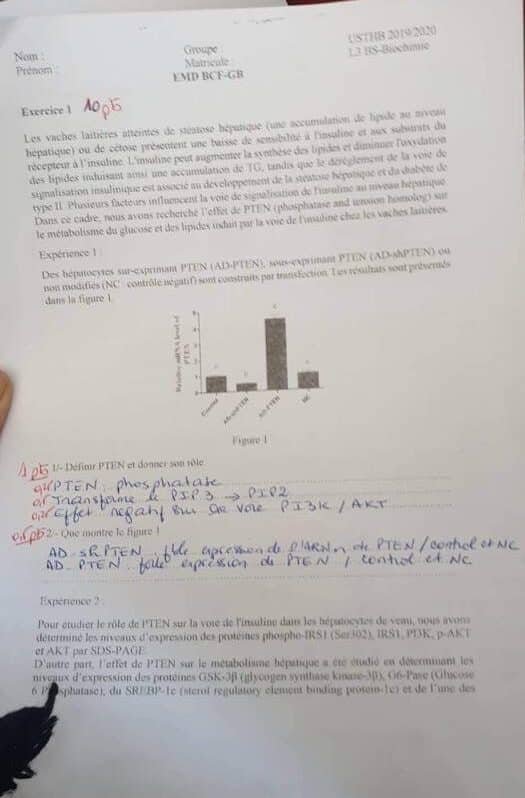 USTHB 2019/2020
L3 BS-Biochimie
Nom :
Prénom :
Groupe :
Matricule :
EMD BCF-GB
Exercice 1 10 pts
Les vaches laitières atteintes de stéatose hépatique (une accumulation de lipide au niveau
hépatique) ou de cétose présentent une baisse de sensibilité à l'insuline et aux substrats du
récepteur à l'insuline. L'insuline peut augmenter la synthèse des lipides et diminuer l'oxydation
des lipides induisant ainsi une accumulation de TG, tandis que le dérèglement de la voie de
signalisation insulinique est associé au développement de la stéatose hépatique et du diabète de
type II. Plusieurs facteurs influencent la voie de signalisation de l'insuline au niveau hépatique.
Dans ce cadre, nous avons recherché l'effet de PTEN (phosphatase and tension homolog) sur
le métabolisme du glucose et des lipides induit par la voie de l'insuline chez les vaches laitières.
Expérience 1 :
Des hépatocytes sur-exprimant PTEN (AD-PTEN), sous-exprimant PTEN (AD-shPTEN) ou
non modifiés (NC contrôle négatif) sont construits par transfection. Les résultats sont présentés
dans la figure 1.
Relative mRNA level of
PTEN
5
4
3
2
1
0
Control
AD-shPTEN
AD-PTEN
NC
Figure 1
1 pts 1/- Définir PTEN et donner son rôle
PTEN : phosphatase
0,5 Transforme le PIP3 → PIP2
0,25 Effet négatif sur la voie PI3K / AKT
0,5 pts 2/- Que montre le figure 1
AD-shPTEN : faible expression de l'ARNm de PTEN / control et NC
AD-PTEN : forte expression de PTEN / control et NC
Expérience 2 :
Pour étudier le rôle de PTEN sur la voie de l'insuline dans les hépatocytes de veau, nous avons
déterminé les niveaux d'expression des protéines phospho-IRS1 (Ser302), IRS1, PI3K, p-AKT
et AKT par SDS-PAGE.
D'autre part, l'effet de PTEN sur le métabolisme hépatique a été étudié en déterminant les
niveaux d'expression des protéines GSK-3β (glycogen synthase kinase-3β), G6-Pase (Glucose
6 Phosphatase), du SREBP-1c (sterol regulatory element binding protein-1c) et de l'une des